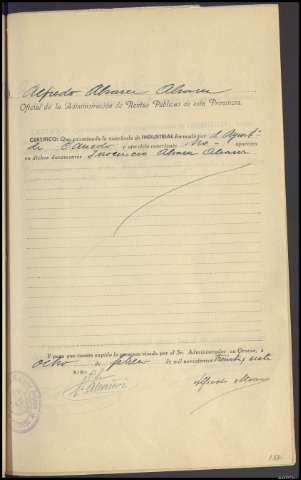 Alfredo Alvarez Alvarez
Oficial de la Administración de Rentas Públicas de esta Provincia.
CERTIFICO: Que examinada la matrícula de INDUSTRIAL formada por el Ayunt.
de y ejercicio corriente No aparece
en dichos documentos Inocencio Alvarez Alvarez
Y para que conste expido la presente visada por el Sr. Administrador en Orense, a
ocho de febrero de mil novecientos treinta y siete
Alfredo Alvarez